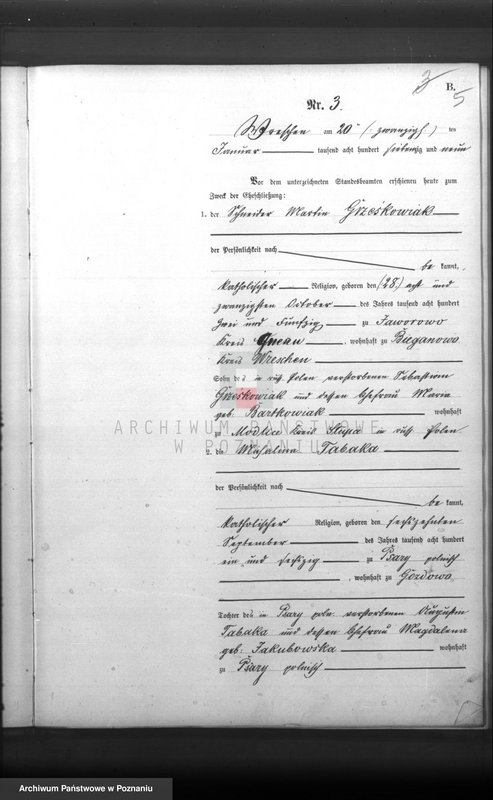 3
B.
5
Nr. 3.
Wreschen am 20 (zwanzigst) ten
Januar tausend acht hundert siebenzig und neun
Vor dem unterzeichneten Standesbeamten erschienen heute zum
Zweck der Eheschließung:
1. der Schneider Martin Grześkowiak
der Persönlichkeit nach
be kannt,
katholischer Religion, geboren den (28.) acht und
zwanzigsten October des Jahres tausend acht hundert
zwei und fünfzig zu Jaworowo
Kreis Gnesen, wohnhaft zu Bieganowo
Kreis Wreschen
Sohn des in russ. Polen verstorbenen Sebastian
Grześkowiak und dessen Ehefrau Maria
geb. Bartkowiak wohnhaft
zu Modlica Kreis Slupia in russ. Polen
2. die Tabaka
der Persönlichkeit nach
be kannt,
katholischer Religion, geboren den sechszehnten
September des Jahres tausend acht hundert
ein und sechszig zu Psary polnisch
, wohnhaft zu Gozdowo
Tochter des in Psary poln. verstorbenen Augustin
Tabaka und dessen Ehefrau Magdalena
geb. Jakubowska wohnhaft
zu Psary polnisch
ARCHIWUM PAŃSTWOWE
W POZNANIU
Archiwum Państwowe w Poznaniu